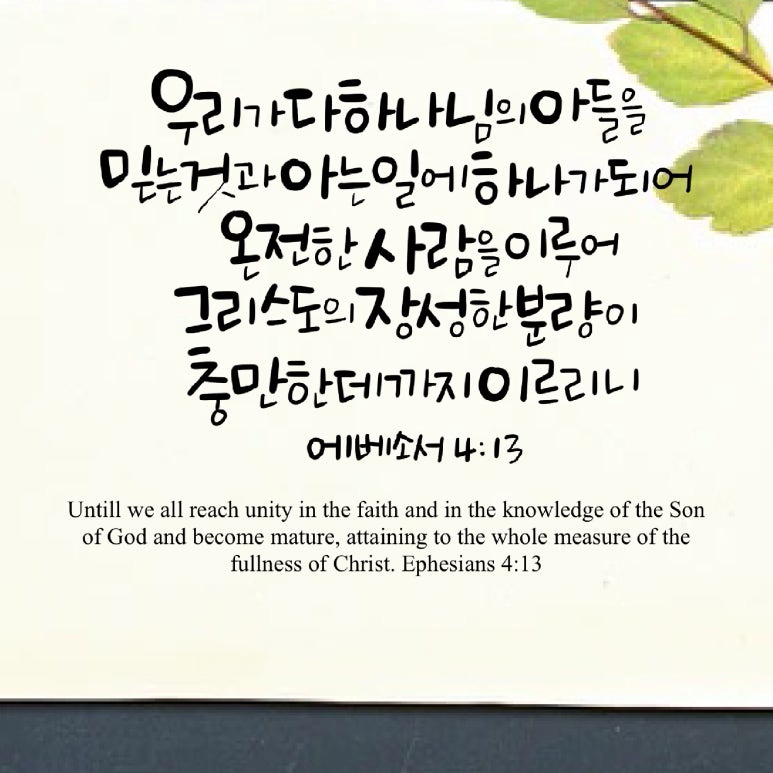 우리가 다 하나님의 아들을
믿는 것과 아는 일에 하나가 되어
온전한 사람을 이루어
그리스도의 장성한 분량이
충만한 데까지 이르리니
에베소서 4:13
Untill we all reach unity in the faith and in the knowledge of the Son
of God and become mature, attaining to the whole measure of the
fullness of Christ. Ephesians 4:13